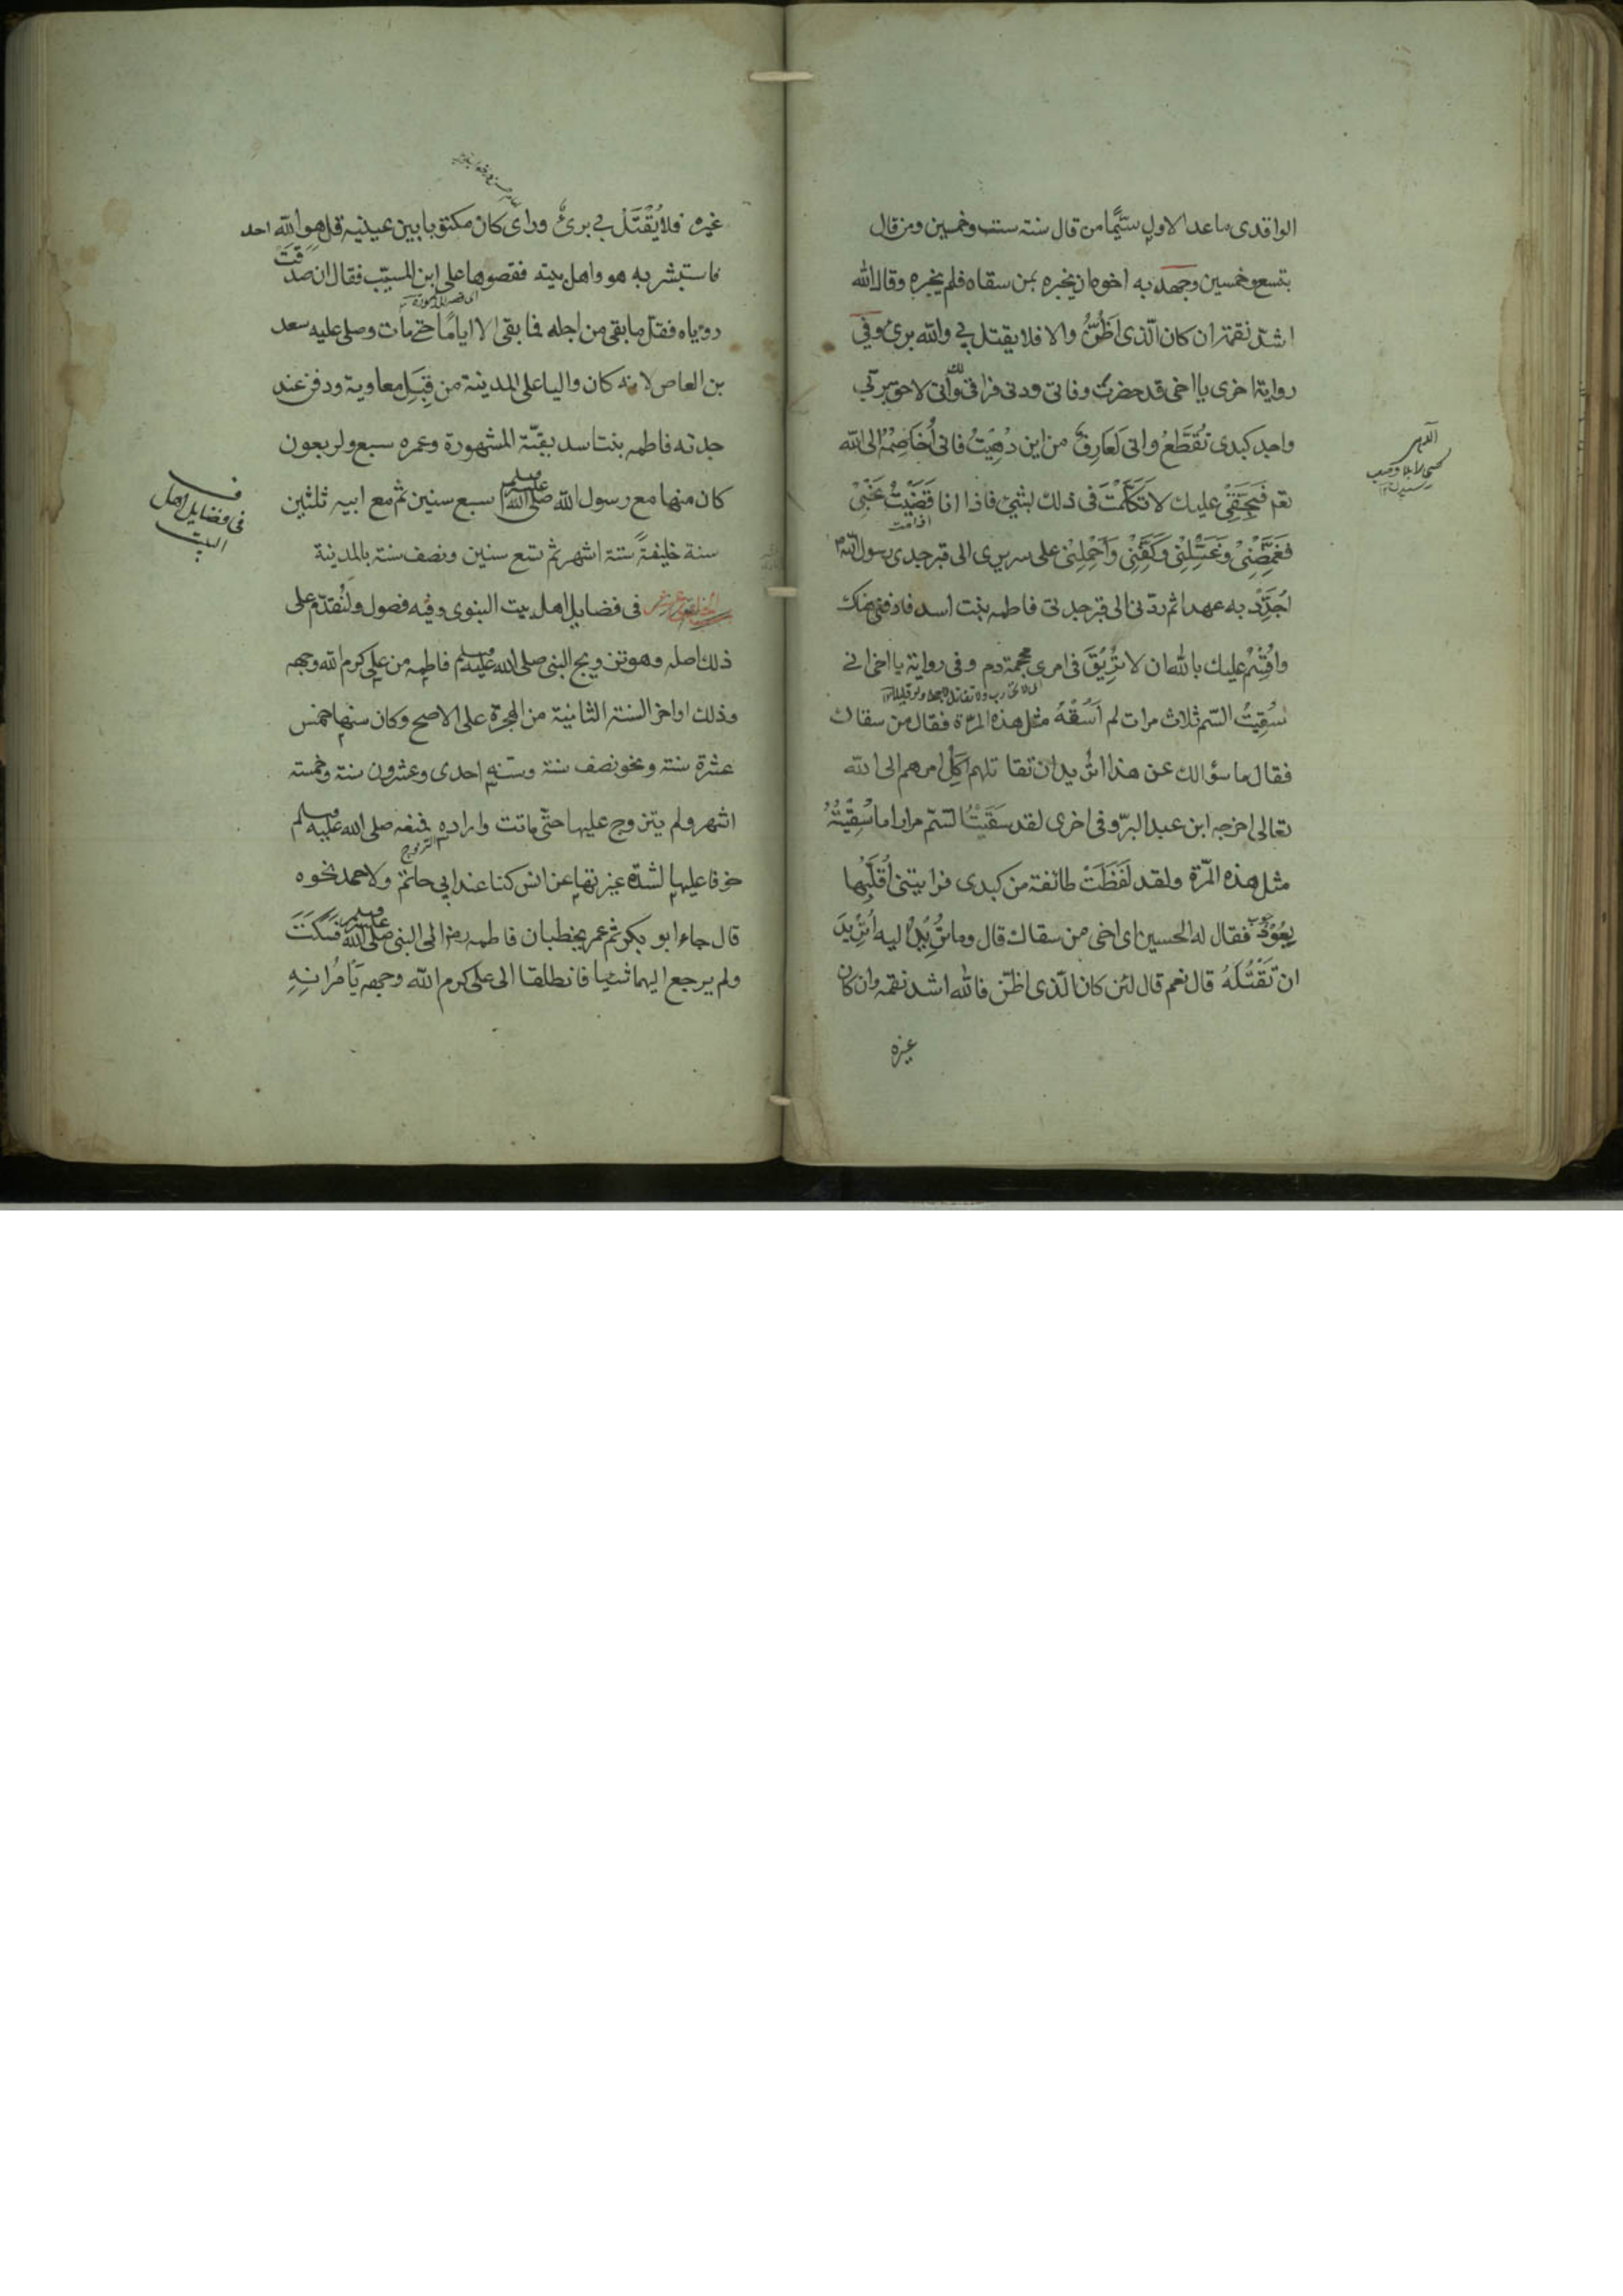 الواقدى ما عدا الاول سيّما من قال سنة ست وخمسين ومن قال
بتسع وخمسين وجهد به اخوه ان يخبره بمن سقاه فلم يخبره وقال الله
اشد نقمة ان كان الّذى اَظُنُّ والا فلا يقتل بي والله برئ وفي
رواية اخرى يا اخى قد حضرت وفاتى ودنى فراقى لك وانّى لاحق بربّي
واجد كبدى تُقَطَّعُ وانى لَعَارِفٌ من اين دُهِيْتُ فانى اُخَاصِمُهُ الى الله
تعم فبحقّى عليك لا تَكَلَّمْتَ فى ذلك بشئ فاذا انا قَضَيْتُ نَحْبِيْ
اذا مت
فَغَمِّضْنِيْ وَغَسِّلْنِيْ وَكَفِّنِّيْ وَاَحْمِلْنِيْ على سريرى الى قبر جدى رسول الله
اُجَدِّدْ به عهدا ثم ردّنى الى قبر جدتى فاطمه بنت اسد فادفنى هناك
واُقْسِمُ عليك بالله ان لا تُرِيْقَ فى امرى محجمة دم وفى رواية يا اخى انى
سُقِيْتُ السّم ثلاث مرات لم اُسْقَهُ مثل هذه المرّة فقال من سقاك
فقال ما سؤالك عن هذا اتريد ان تقاتلهم اَكِلُ امرهم الى الله
تعالى اخرجه ابن عبد البرّ وفى اخرى لقد سُقِيْتُ السّمّ مرارا ما سُقِيْتُهُ
مثل هذه المرّة ولقد لَفَظْتُ طائفة من كبدى فرايتنى اُقَلِّبُها
بِعُوْدٍ فقال له الحسين اى اخى من سقاك قال وما تُرِيْدُ اليه اَتُرِيْدُ
ان تَقْتُلَهُ قال نعم قال لئن كان الّذى اظنّ فالله اشد نقمه وان كان
غيره
غيره فلا يُقْتَلْ بي برئ وراى كان مكتوبا بين عينيه قل هو الله احد
فاستبشر به هو واهل بيته فقصوها على ابن المسيّب فقال ان صدقت
روياه فقلّ ما بقى من اجله فما بقى الا ايامًا حتى مات وصلى عليه سعد
بن العاص لانه كان واليا على المدينة من قِبَلِ معاوية ودفن عند
جدته فاطمه بنت اسد بقبّة المشهورة وعمره سبع واربعون
كان منها مع رسول الله صلى الله عليه وسلم سبع سنين ثم مع ابيه ثلثين
سنة خليفةً ستة اشهر ثم تسع سنين ونصف سنة بالمدينة
فى فضايل اهل بيت النبوى وفيه فصول ولنقدّم على
ذلك اصله وهو تزويج النبى صلى الله عليه وسلم فاطمه من على كرم الله وجهه
وذلك اواخر السنة الثانية من الهجرة على الاصح وكان سنها خمس
عشرة سنة ونحو نصف سنة وسنه احدى وعشرون سنة وخمسة
اشهر ولم يتزوج عليها حتّى ماتت واراده فمنعه صلى الله عليه وسلم
التزوج
خوفا عليها لشدّة غيرتها عن انس كنا عند ابي حاتم ولاحمد نحوه
قال جاء ابو بكر ثم عمر يخطبان فاطمه الى النبى صلى الله عليه وسلم فَسَكَتَ
ولم يرجع اليهما شيا فانطلقا الى على كرم الله وجهه يَاْمُرَانِهِ
فى فضايل اهل
البيت